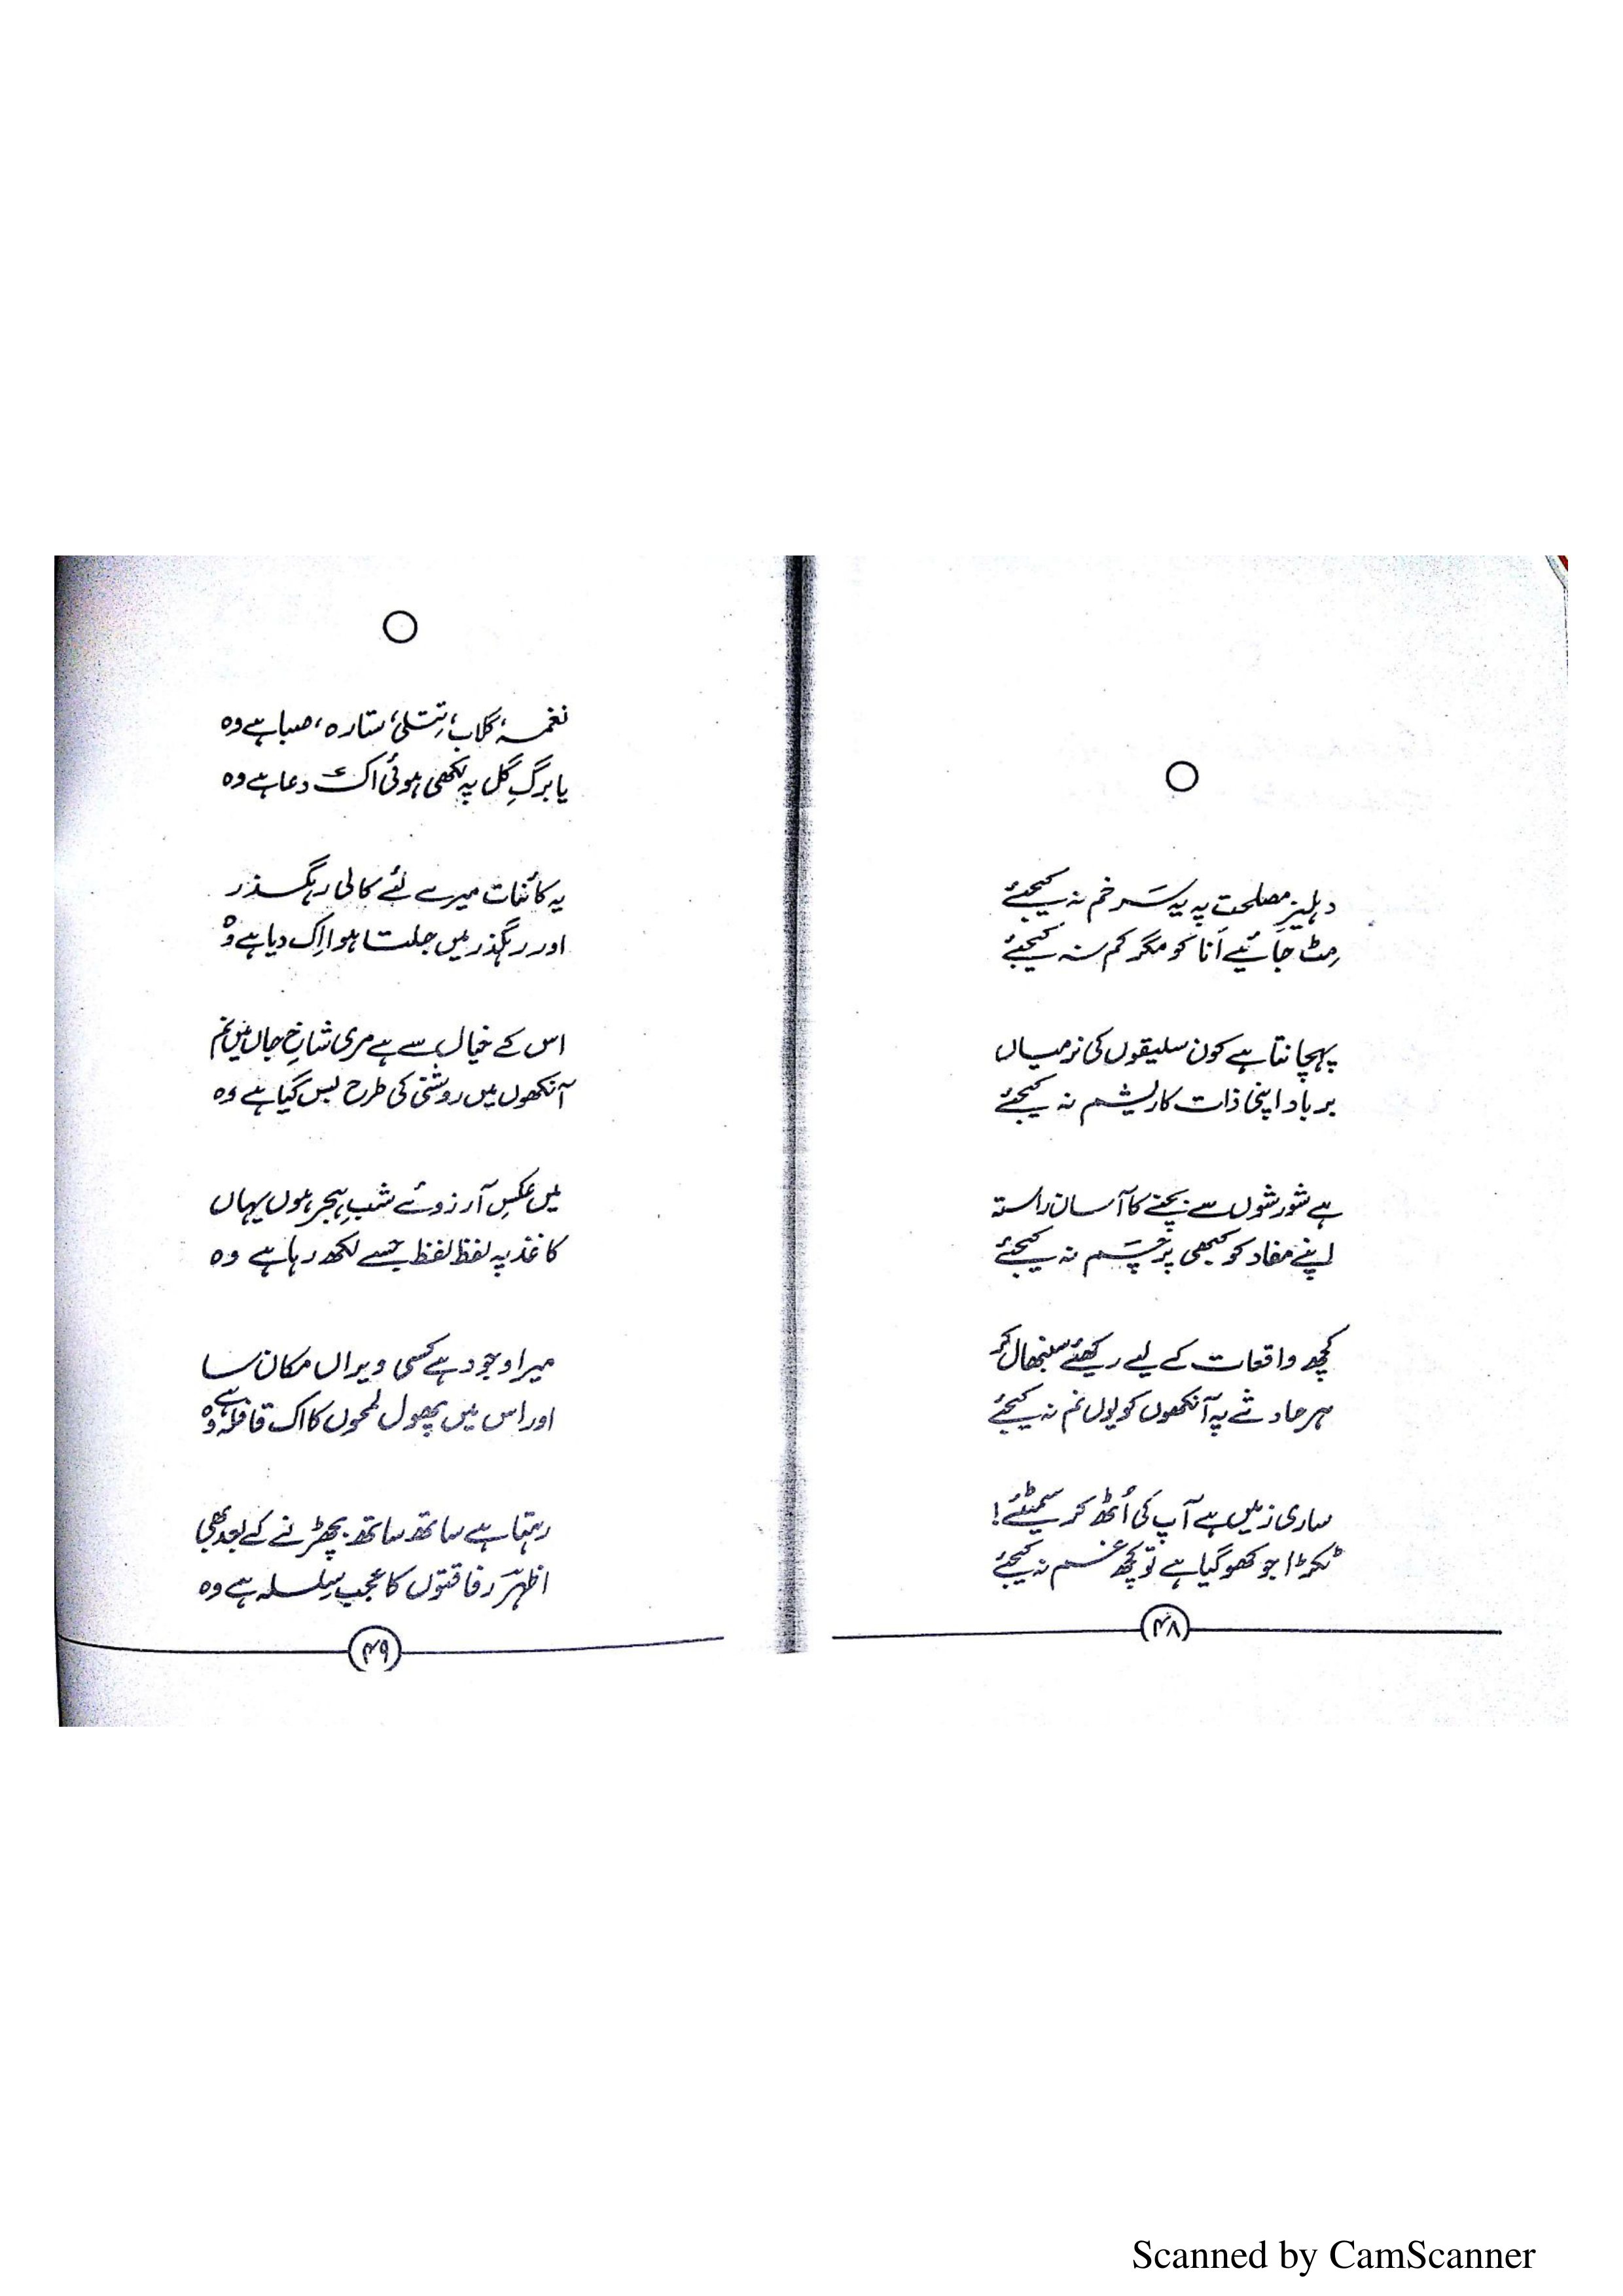 دہلیزِ مصلحت پہ یہ سَر خم نہ کیجئے
مِٹ جائیے اَنا کو مگر کم نہ کیجئے
پہچانتا ہے کون سلیقوں کی نرمیاں
برباد اپنی ذات کا ریشم نہ کیجئے
ہے شورشوں سے بچنے کا آسان راستہ
اپنے مفاد کو کبھی پرچَم نہ کیجئے
کچھ واقعات کے لیے رکھئے سنبھال کر
ہر حادثے پہ آنکھوں کو یوں نم نہ کیجئے
ساری زمیں ہے آپ کی اُٹھ کر سمیٹئے!
ٹکڑا جو کھو گیا ہے تو کچھ غم نہ کیجئے
۴۸
نغمہ، گلاب، تِتلی، ستارہ، صبا ہے وہ
یا برگِ گل پہ لکھی ہوئی اک دعا ہے وہ
یہ کائنات میرے لئے کالی رہگذر
اور رہگذر میں جلتا ہوا اِک دیا ہے وہ
اس کے خیال سے ہے مری شاخِ جاں میں نم
آنکھوں میں روشنی کی طرح بس گیا ہے وہ
میں عکسِ آرزوئے شبِ ہجر ہوں یہاں
کاغذ پہ لفظ لفظ جسے لکھ رہا ہے وہ
میرا وجود ہے کسی ویراں مکان سا
اور اس میں پھول لمحوں کا اک قافلہ ہے وہ
رہتا ہے ساتھ ساتھ بچھڑنے کے بعد بھی
اظہرؔ رفاقتوں کا عجب سِلسلہ ہے وہ
۴۹
Scanned by CamScanner